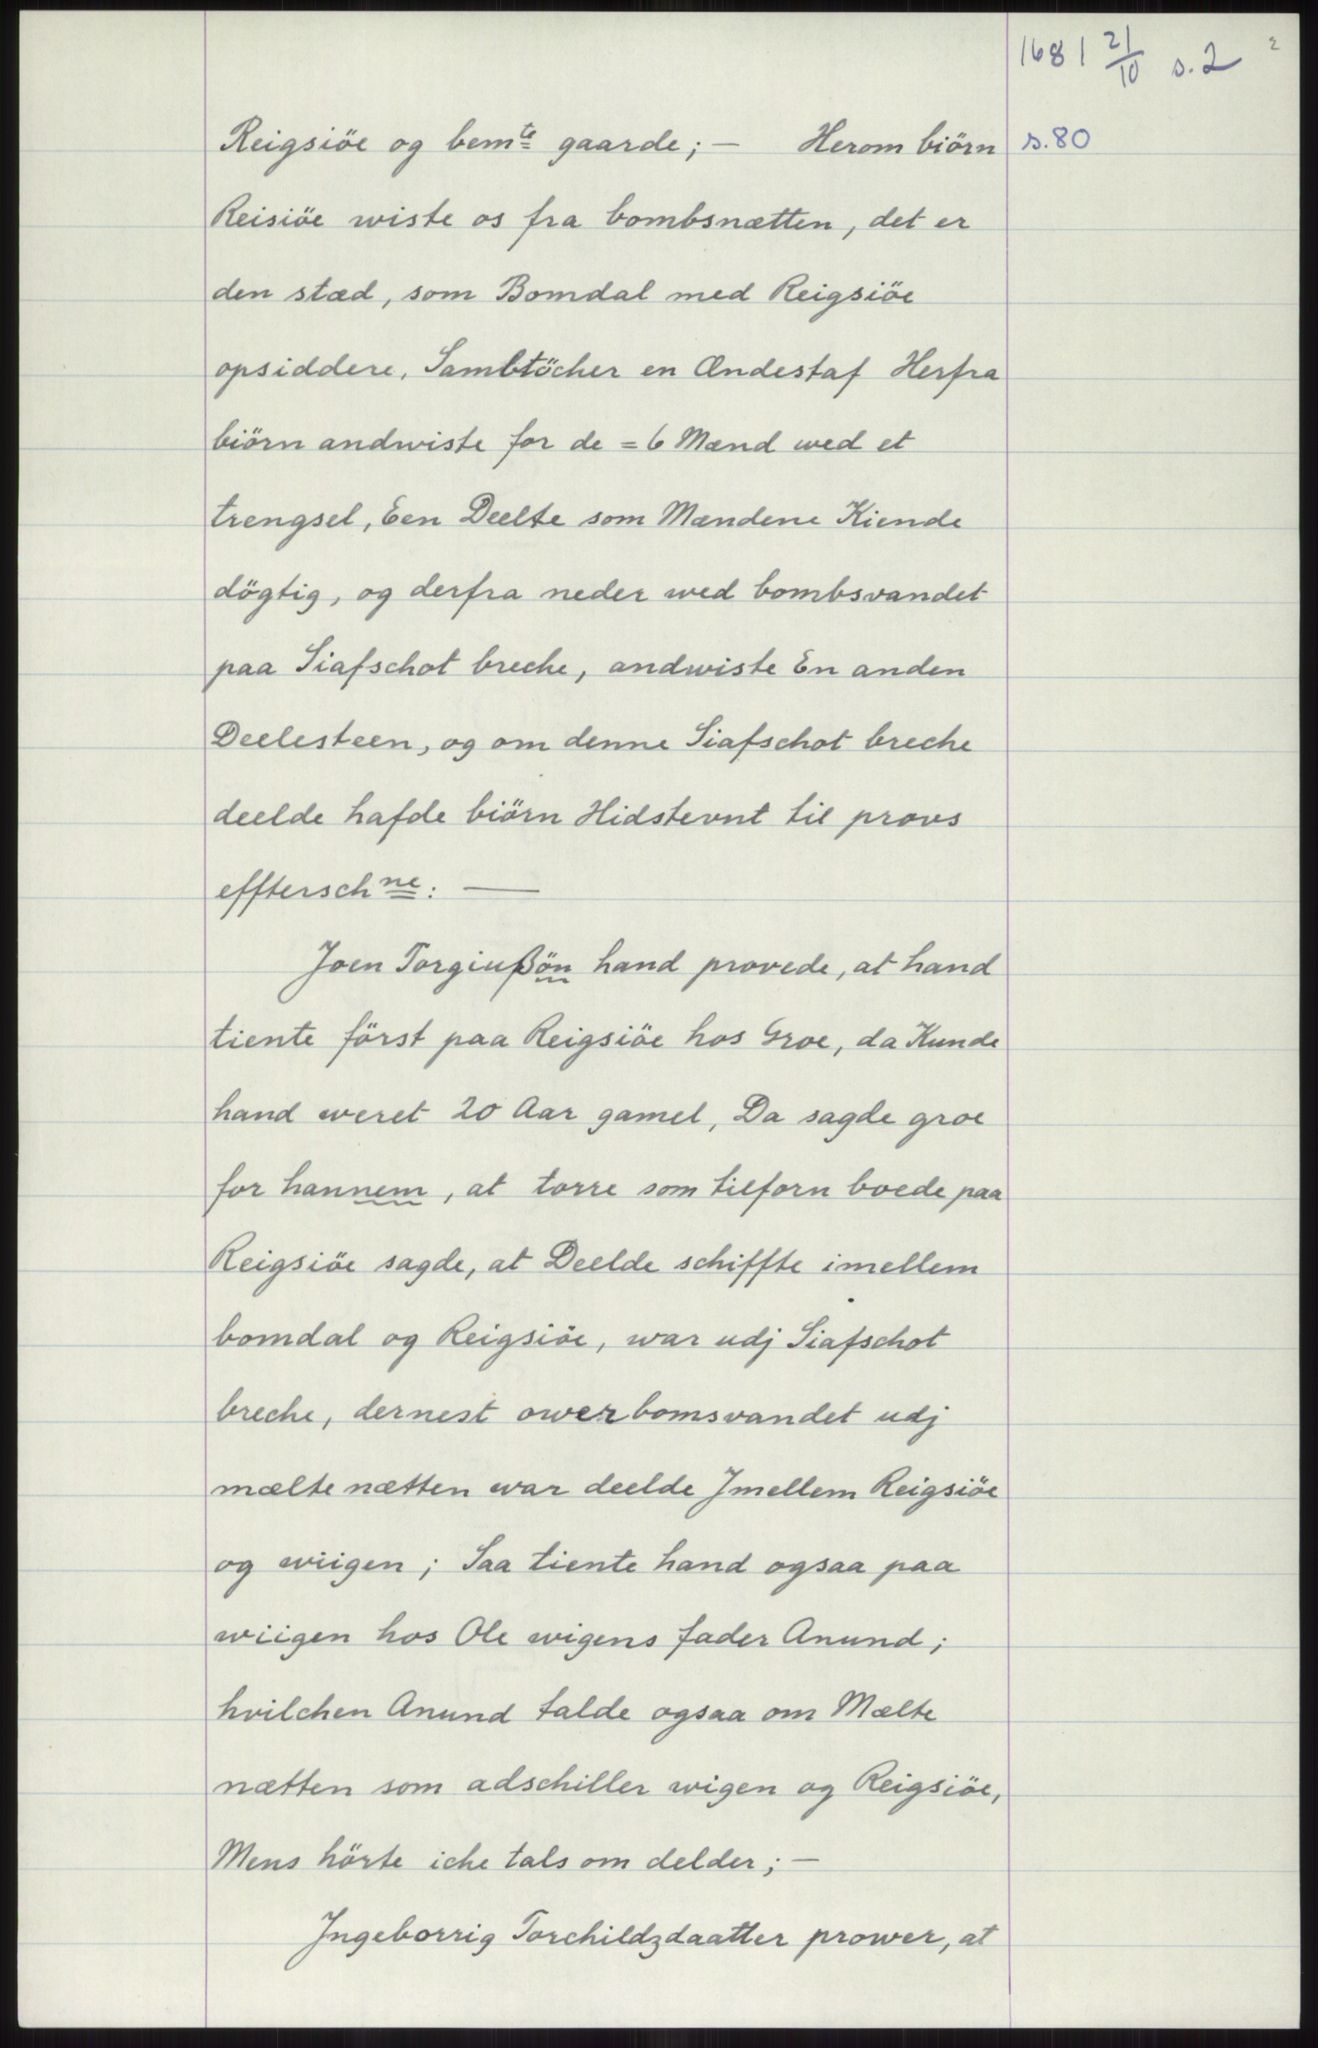 1681 21/10 s. 2
2
Reigsiöe og bemte gaarde; — Herom biörn
s. 80
Reisiöe wiste os fra bombsnætten, det er
den stæd, som Bomdal med Reigsiöe
opsiddere, Sambtöcher en Ændestaf Herfra
biörn andwiste for de = 6 Mænd wed et
trengsel, Een Deelte som Mændene Kiende
dögtig, og derfra neder wed bombsvandet
paa Siafschot breche, andwiste En anden
Deelesteen, og om denne Siafschot breche
deelde hafde biörn Hidstevnt til provs
efftersch ne: —
Joen Torgiußön hand provede, at hand
tiente först paa Reigsiöe hos Groe, da Kunde
hand weret 20 Aar gamel, Da sagde groe
for hannem, at torre som tilforn boede paa
Reigsiöe sagde, at Deelde schiffte imellem
bomdal og Reigsiöe, war udj Siafschot
breche, dernest ower bomsvandet udj
mælte nætten war deelde Jmellem Reigsiöe
og wiigen; Saa tiente hand ogsaa paa
wiigen hos Ole wigens fader Anund;
hvilchen Anund talde ogsaa om Mælte
nætten som adschiller wigen og Reigsiöe,
Mens hörte iche tals om delder; —
Jngeborrig Torchildzdaatter prower, at